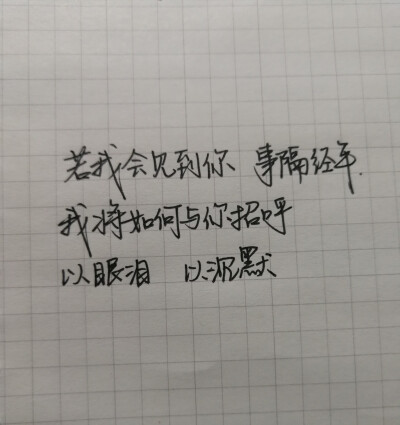 若我会见到你 事隔经年.
我将如何与你招呼
以眼泪 以沉默